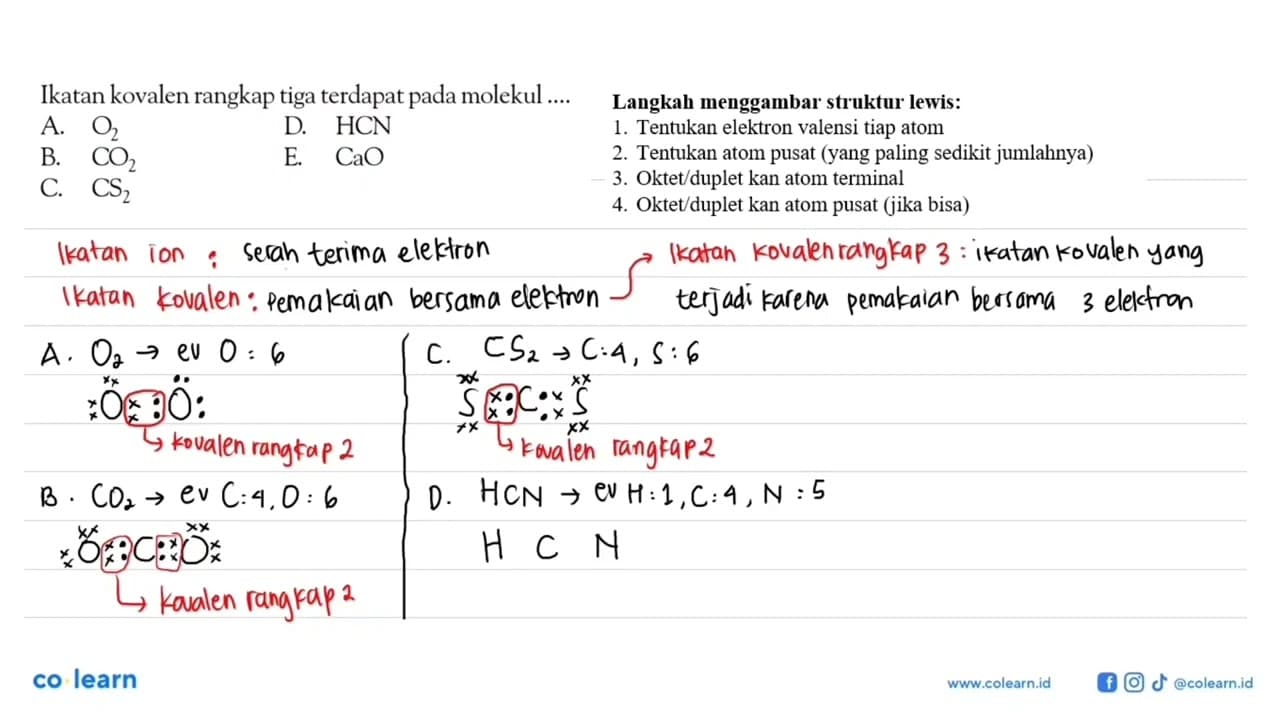 Ikatan kovalen rangkap tiga terdapat pada molekul ....
A. O2
B. CO2
C. CS2
D. HCN
E. CaO
Langkah menggambar struktur lewis:
1. Tentukan elektron valensi tiap atom
2. Tentukan atom pusat (yang paling sedikit jumlahnya)
3. Oktet/duplet kan atom terminal
4. Oktet/duplet kan atom pusat (jika bisa)
Ikatan ion : serah terima elektron
Ikatan kovalen : pemakaian bersama elektron
Ikatan kovalen rangkap 3 : ikatan kovalen yang
terjadi karena pemakaian bersama 3 elektron
A. O2 → ev O : 6
O O
kovalen rangkap 2
B. CO2 → ev C : 4, O : 6
O C O
kovalen rangkap 2
C. CS2 → C : 4, S : 6
S C S
kovalen rangkap 2
D. HCN → ev H : 1, C : 4, N : 5
H C N
co learn
www.colearn.id
@colearn.id